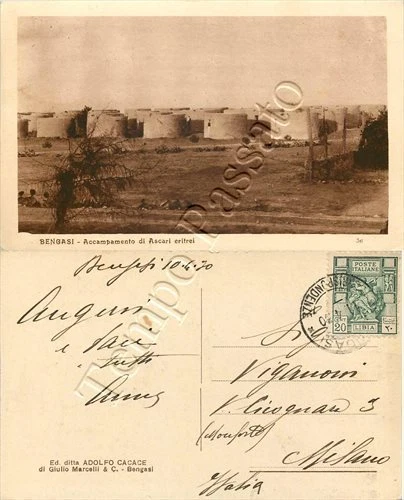 BENGASI - Accampamento di Ascari eritrei
36
Tempo Passato
Bengasi 10.4.30
Auguri
e baci
tutti
Anna
Ed. ditta ADOLFO CACACE
di Giulio Marcelli & C. - Bengasi
POSTE
ITALIANE
20
LIBIA
٢٠
Viganoni
V. Cicognara 3
(Monforte)
Milano
Italia